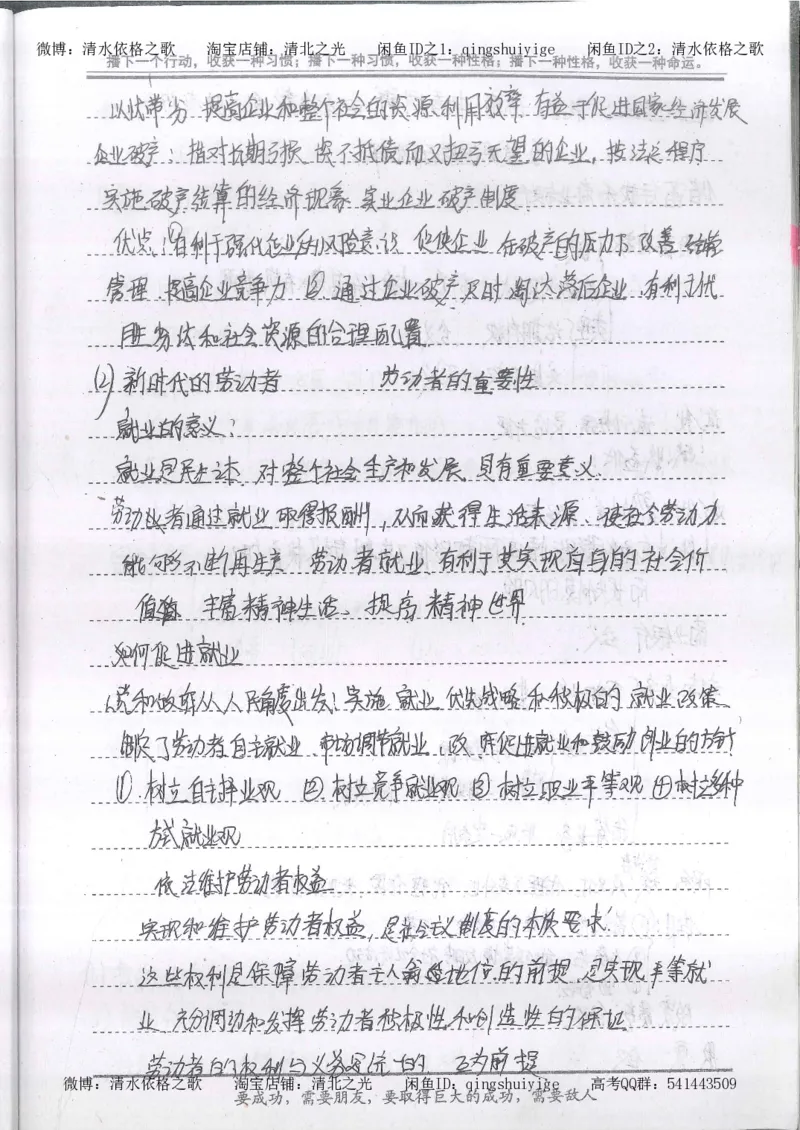 微博：清水依格之歌 淘宝店铺：清北之光 闲鱼ID之1：qingshuiyige 闲鱼ID之2：清水依格之歌
播下一个行动，收获一种习惯；播下一种习惯，收获一种性格；播下一种性格，收获一种命运。
以优带劣 提高企业和整个社会的资源利用效率 有益于促进国家经济发展
企业破产：指对长期亏损 资不抵债而又扭亏无望的企业，按法定程序
实施破产结算的经济现象 实业企业破产制度
优点：①有利于强化企业的风险意识 促使企业 在破产的压力下 改善经营
管理 提高企业竞争力 ②通过企业破产及时淘汰落后企业 有利于优
胜劣汰和社会资源的合理配置
(2) 新时代的劳动者 劳动者的重要性
就业的意义：
就业是民生之本 对整个社会生产和发展 具有重要意义
劳动者通过就业 取得报酬，从而获得生活来源、使社会劳动力
能够不断再生产 劳动者就业 有利于其实现自身的社会价
值 丰富精神生活、提高精神世界
如何促进就业
党和政府从人民角度出发！实施 就业 优先战略 和积极的 就业政策、
制定了劳动者自主就业 市场调节就业、政府促进就业和鼓励创业的方针
① 树立自主择业观 ②树立竞争就业观 ③ 树立职业平等观 ④树立多种
方式就业观
依法维护劳动者权益
实现和维护劳动者权益，是社会主义制度的本质要求
这些权利是保障劳动者主人翁地位的前提 是实现平等就
业 充分调动和发挥劳动者积极性和创造性的保证
劳动者的权利与义务是统一的 互为前提
微博：清水依格之歌 淘宝店铺：清北之光 闲鱼ID：qingshuiyige 高考QQ群：541443509
要成功，需要朋友，要取得巨大的成功，需要敌人